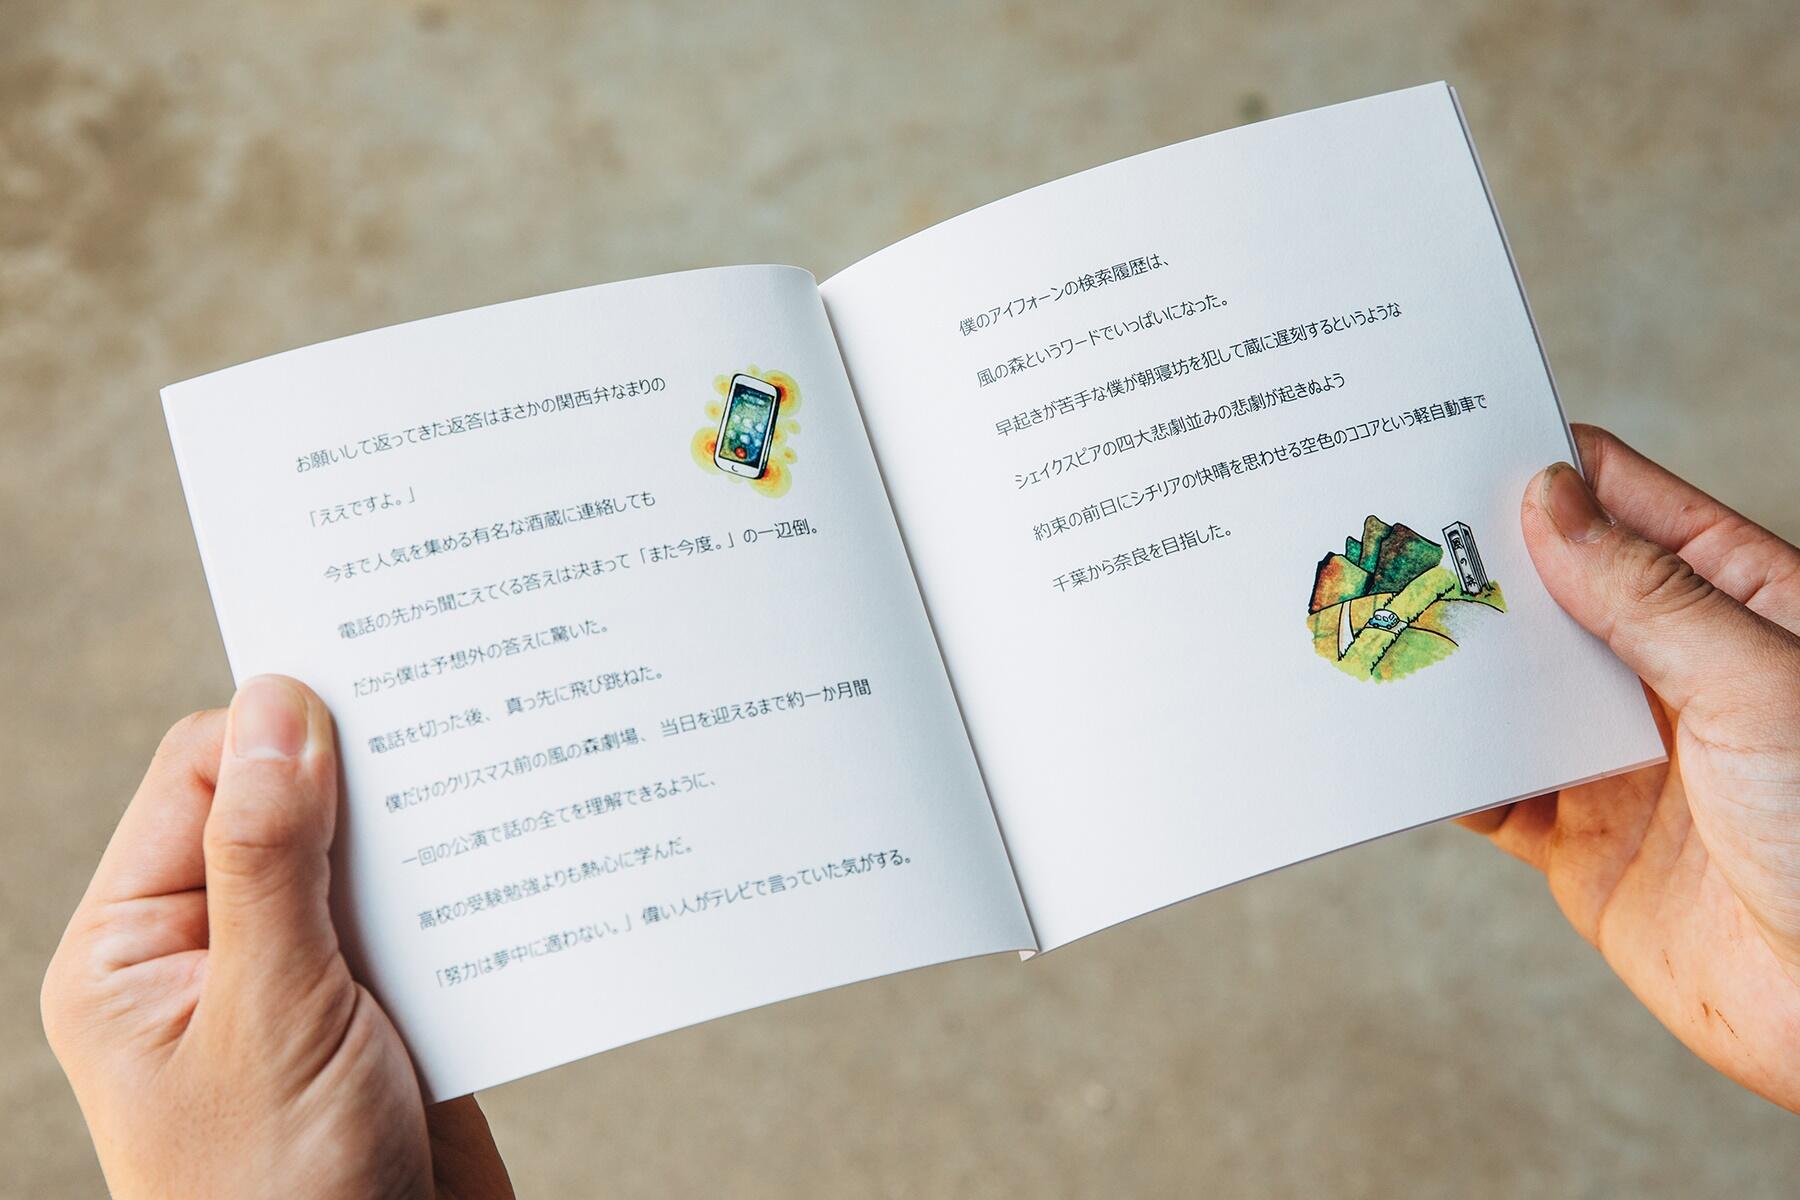 お願いして返ってきた返答はまさかの関西弁なまりの
「ええですよ。」
今まで人気を集める有名な酒蔵に連絡しても
電話の先から聞こえてくる答えは決まって「また今度。」の一辺倒。
だから僕は予想外の答えに驚いた。
電話を切った後、真っ先に飛び跳ねた。
僕だけのクリスマス前の風の森劇場、当日を迎えるまで約一か月間
一回の公演で話の全てを理解できるように、
高校の受験勉強よりも熱心に学んだ。
「努力は夢中に適わない。」偉い人がテレビで言っていた気がする。
僕のアイフォーンの検索履歴は、
風の森というワードでいっぱいになった。
早起きが苦手な僕が朝寝坊を犯して蔵に遅刻するというような
シェイクスピアの四大悲劇並みの悲劇が起きぬよう
約束の前日にシチリアの快晴を思わせる空色のココアという軽自動車で
千葉から奈良を目指した。
風の森